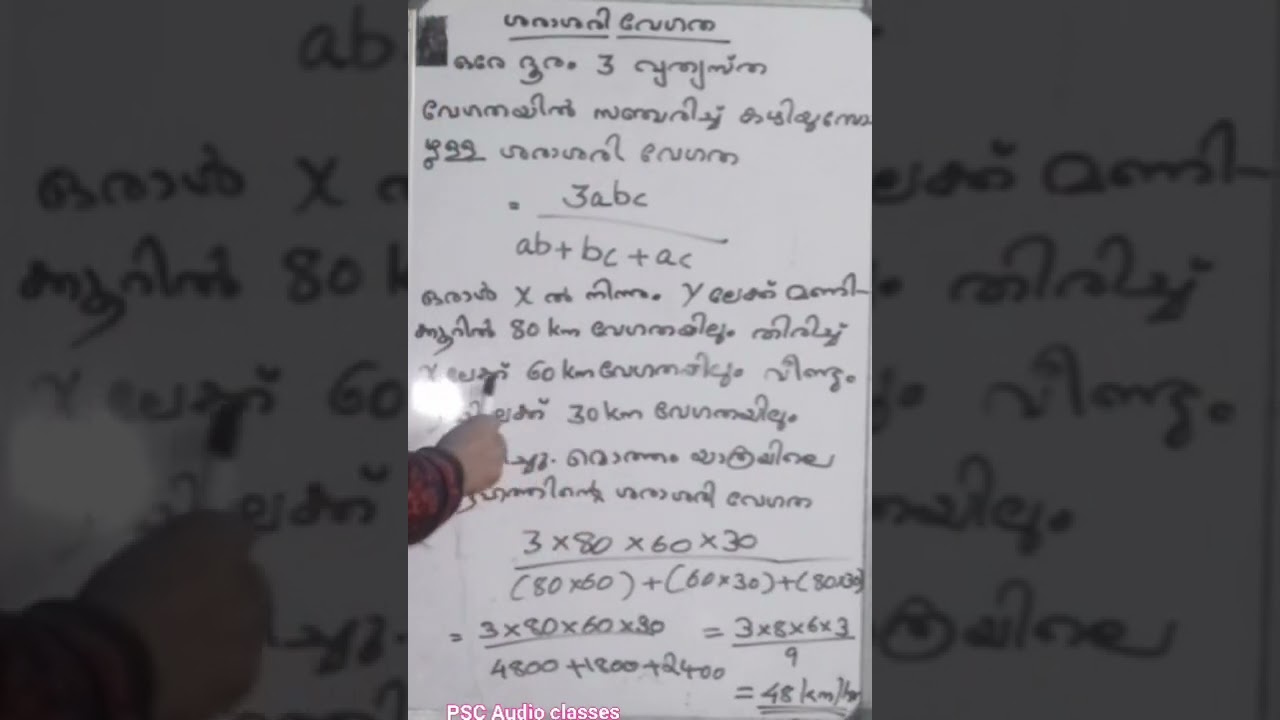 ശരാശരി വേഗത
ഒരേ ദൂരം 3 വ്യത്യസ്ത
വേഗതയിൽ സഞ്ചരിച്ച് കഴിയുമ്പോ
ഴുള്ള ശരാശരി വേഗത
= 3abc
ab+bc+ac
ഒരാൾ X ൽ നിന്നും Y ലേക്ക് മണി-
ക്കൂറിൽ 80 km വേഗതയിലും തിരിച്ച്
ലേക്ക് 60 km വേഗതയിലും വീണ്ടും
ലേക്ക് 30 km വേഗതയിലും
ച്ചു. മൊത്തം യാത്രയിലെ
ശരാശരി വേഗത
3×80×60×30
(80×60)+(60×30)+(80×30)
= 3×80×60×30 = 3×8×6×3
4800+1800+2400 9
= 48 km/hr
PSC Audio classes